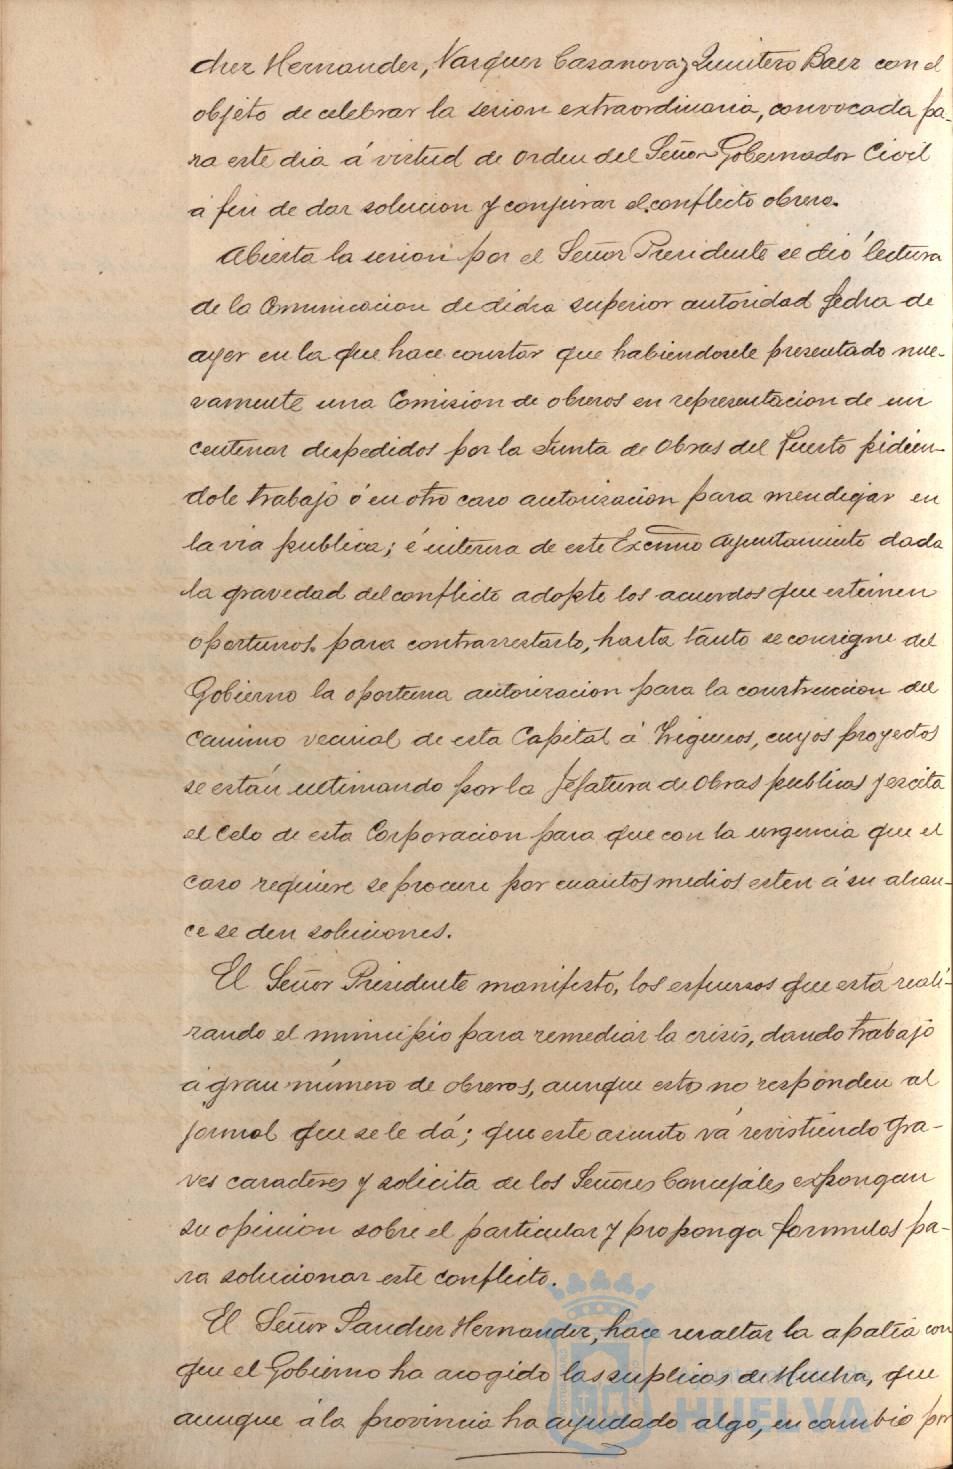 chez Hernandez, Vazquez Casanova y Quintero Baez con el
objeto de celebrar la sesion extraordinaria, convocada pa-
ra este dia á virtud de orden del Señor Gobernador Civil
a fin de dar solucion y conjurar el conflicto obrero.
Abierta la sesion por el Señor Presidente se dió lectura
de la Comunicacion de dicha superior autoridad fecha de
ayer en la que hace constar que habiendosele presentado nue-
vamente una Comision de obreros en representacion de un
centenar despedidos por la Junta de Obras del Puerto pidien-
dole trabajo ó en otro caso autorizacion para mendigar en
la via publica; é interesa de este Excmo Ayuntamiento dada
la gravedad del conflicto adopte los acuerdos que estimen
oportunos para contrarrestarlo, hasta tanto se consigne del
Gobierno la oportuna autorizacion para la construccion del
camino vecinal de esta Capital á Trigueros, cuyos proyectos
se están ultimando por la Jefatura de Obras publicas y escita
el Celo de esta Corporacion para que con la urgencia que el
caso requiere se procure por cuantos medios esten á su alcan-
ce se den soluciones.
El Señor Presidente manifestó, los esfuerzos que está reali-
zando el municipio para remediar la crisis, dando trabajo
á gran número de obreros, aunque esto no responden al
jornal que se le dá; que este asunto vá revistiendo gra-
ves caracteres y solicita de los Señores Concejales expongan
su opinion sobre el particular y proponga formulas pa-
ra solucionar este conflicto.
El Señor Sanchez Hernandez, hace resaltar la apatía con
que el Gobierno ha acogido las suplicas de Huelva, que
aunque á la provincia ha ayudado algo, en cambio por
HUELVA